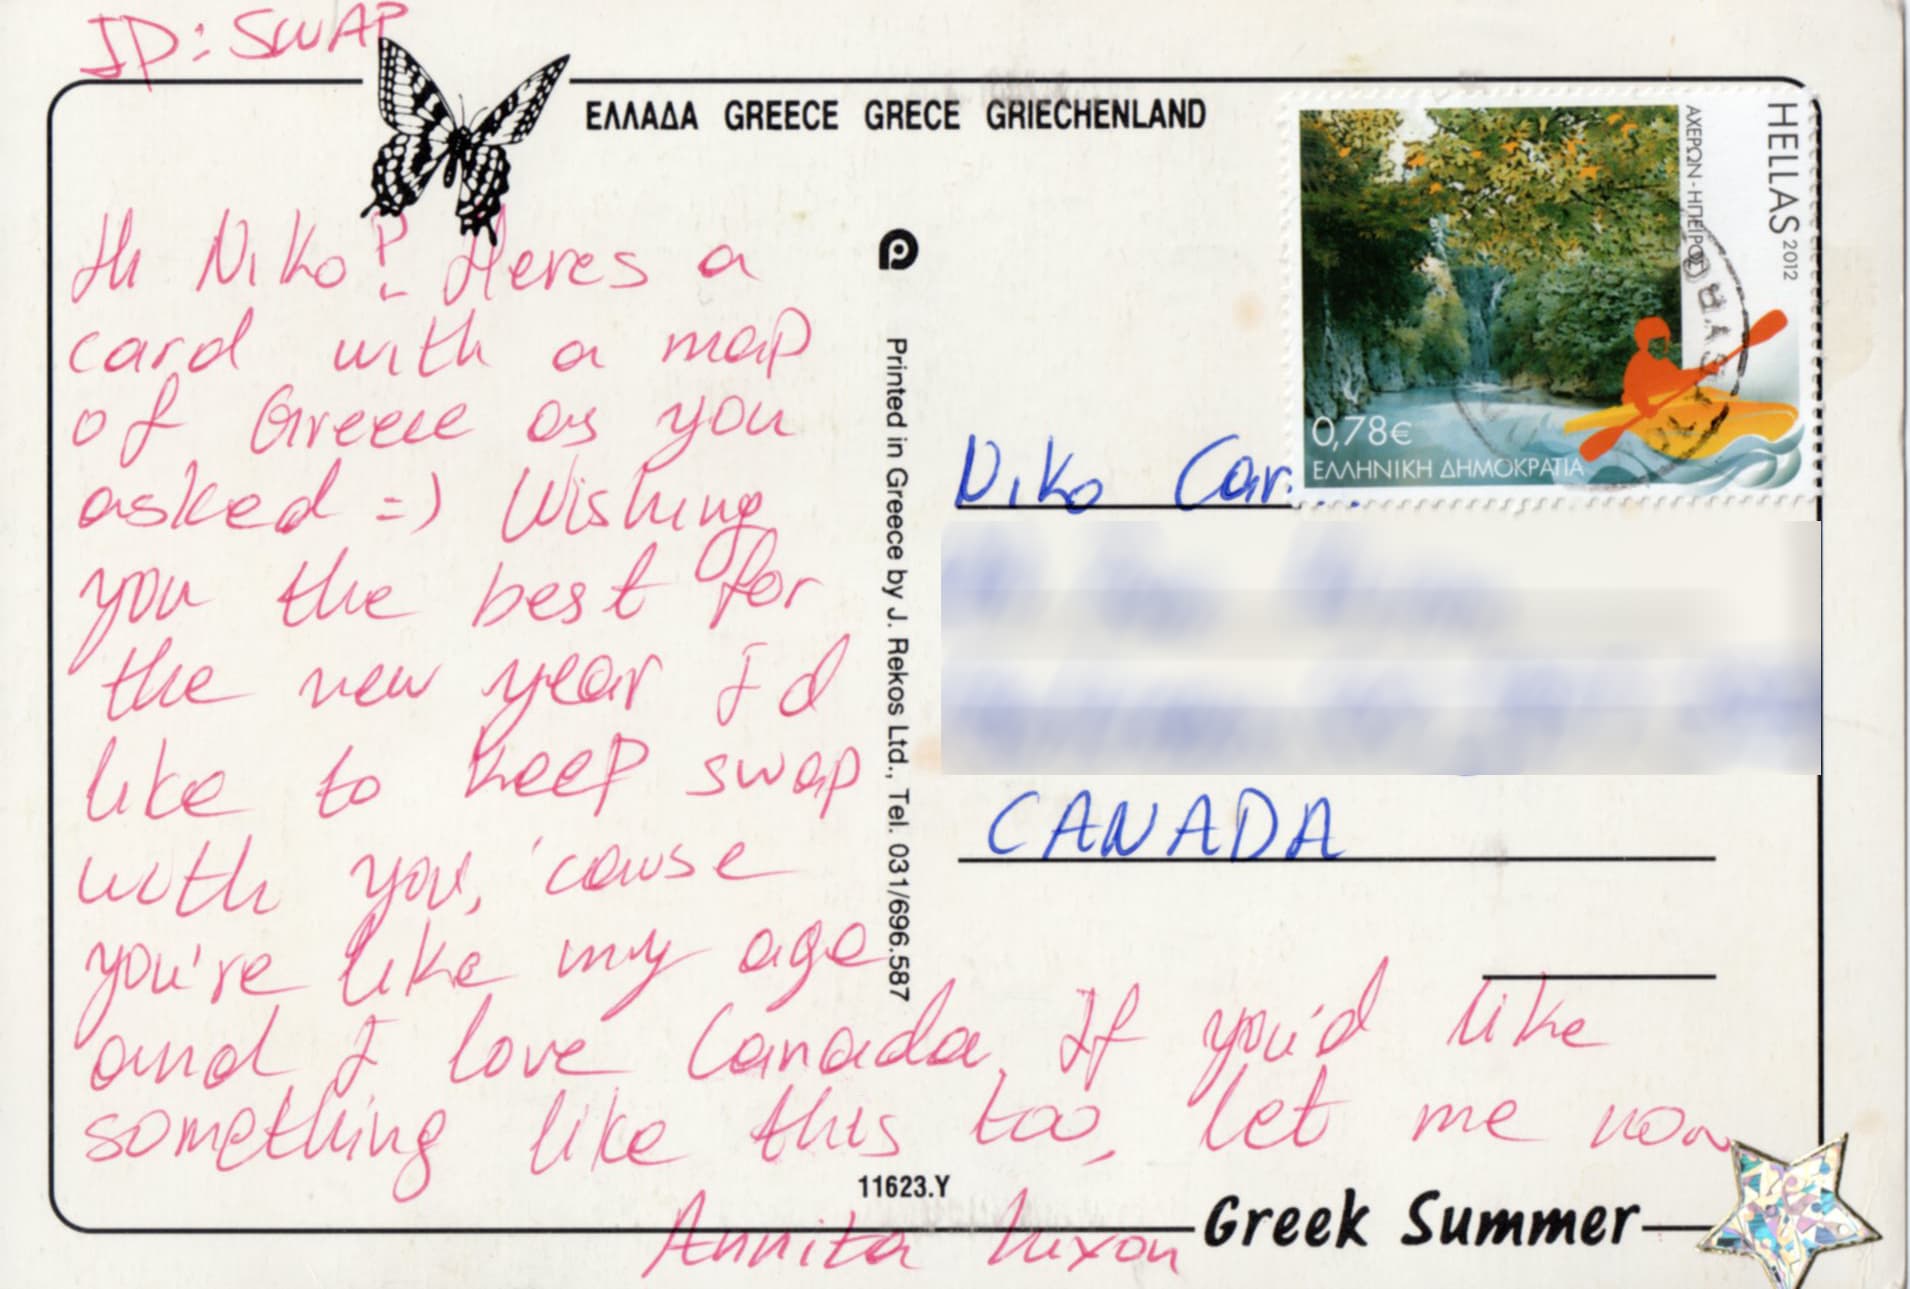 ID: SWAP
ΕΛΛΑΔΑ GREECE GRECE GRIECHENLAND
Hi Niko! Heres a
card with a map
of Greece as you
asked =) Wishing
you the best for
the new year I'd
like to keep swap
with you, 'cause
you're like my age
and I love Canada. If you'd like
something like this too, let me now
Annita
11623.Y
Greek Summer
Printed in Greece by J. Rekos Ltd., Tel. 031/696.587
HELLAS 2012
ΑΧΕΡΩΝ-ΗΠΕΙΡΟΣ
0,78€
ΕΛΛΗΝΙΚΗ ΔΗΜΟΚΡΑΤΙΑ
Niko
CANADA